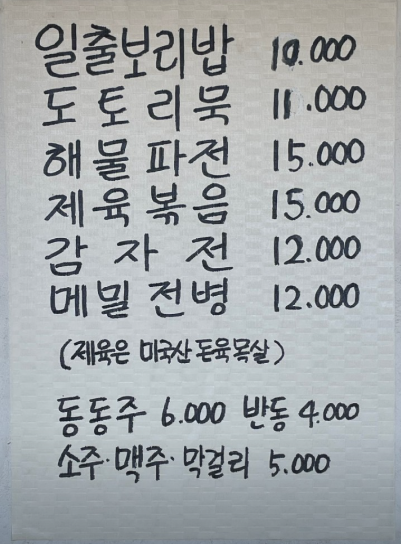 일출보리밥 10.000
도토리묵 11.000
해물파전 15.000
제육볶음 15.000
감자전 12.000
메밀전병 12.000
(제육은 미국산 돈육목살)
동동주 6.000 반동 4.000
소주·맥주·막걸리 5.000